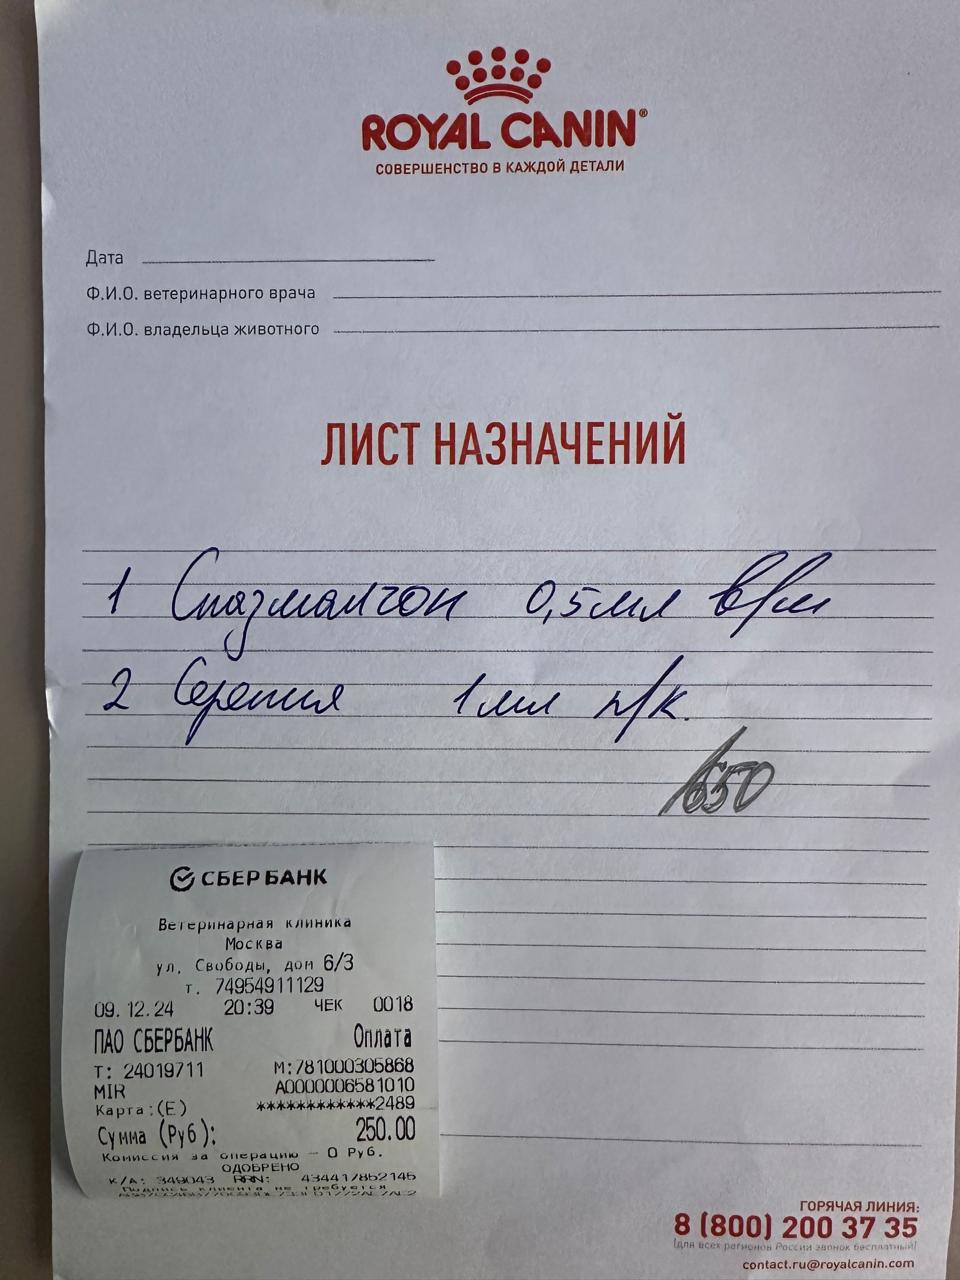 ROYAL CANIN®
СОВЕРШЕНСТВО В КАЖДОЙ ДЕТАЛИ
Дата
Ф.И.О. ветеринарного врача
Ф.И.О. владельца животного
ЛИСТ НАЗНАЧЕНИЙ
1 Спазмалгон 0,5мл в/м
2 Серения 1мл п/к.
650
СБЕР БАНК
Ветеринарная клиника
Москва
ул. Свободы, дом 6/3
т. 74954911129
09.12.24 20:39 ЧЕК 0018
ПАО СБЕРБАНК Оплата
Т: 24019711 М:781000305868
MIR A0000006581010
Карта:(E) ************2489
Сумма (Руб): 250.00
Комиссия за операцию - 0 Руб.
ОДОБРЕНО
К/А: 349043 RRN: 434417852145
Подпись клиента не требуется
ГОРЯЧАЯ ЛИНИЯ:
8 (800) 200 37 35
(для всех регионов России звонок бесплатный)
contact.ru@royalcanin.com